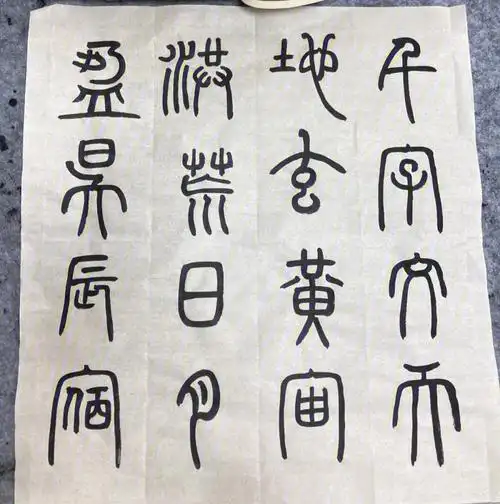 千字文天
地玄黃宙
洪荒日月
盈昃辰宿